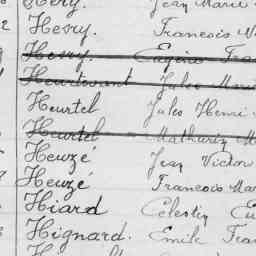 Hery. Jean Marie
Hevry. Francois Vi
Hevry. Eugène Fra
Heurtevent Jules Mari
Heurtel Jules Henri
Heurtel Mathurin M
Heuzé Jean Victor
Heuzé Francois Mar
Hiard Celestin Eu
Hignard. Emile Fran